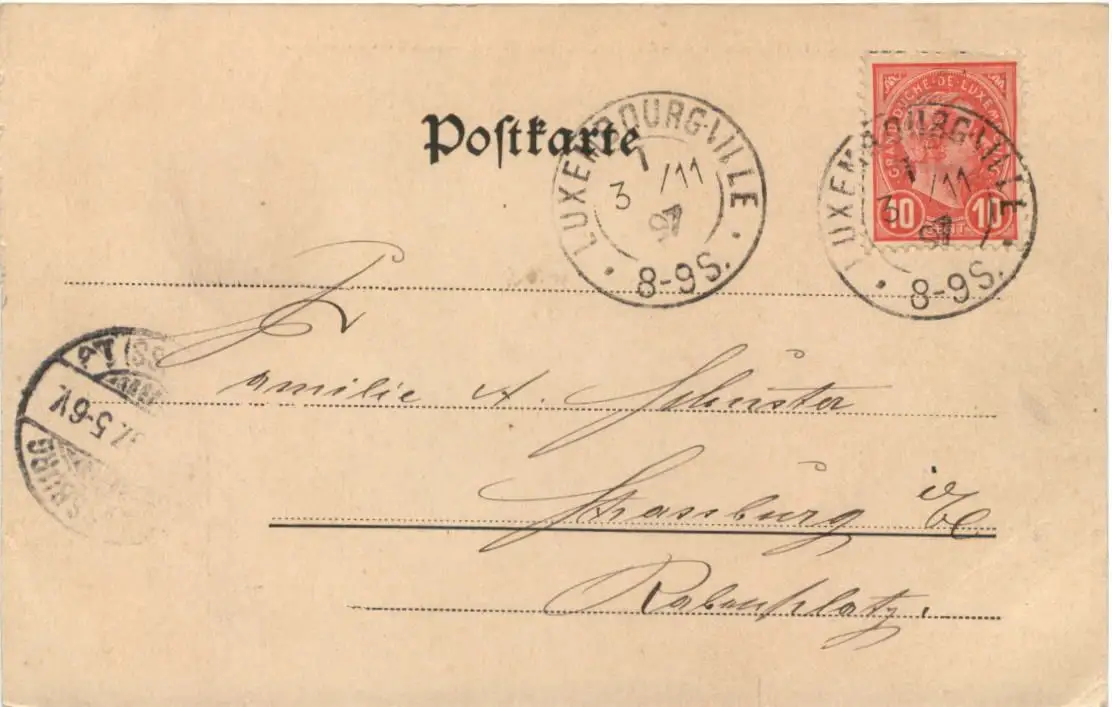 Postkarte
LUXEMBOURG-VILLE
1
3 /11
97
8-9S.
GRAND DUCHE-DE-LUXEMBOURG
10 CENT. 10
LUXEMBOURG-VILLE
1
3 /11
97
8-9S.
Familie A. Schuster
Strassburg i/E
Rabenplatz.
5-6V.